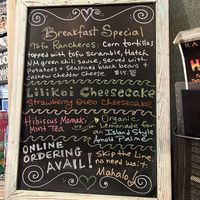 Breakfast Special
Tofu Rancheros: Corn tortillas
topped with tofu scramble, Hatch
NM green chili sauce, served with
Potatoes + seasoned black beans +
Cashew Cheddar Cheese $15.
Lilikoi Cheesecake
Strawberry Oreo Cheesecake
Hibiscus Mamaki
Mint Tea
Organic
Lemonade for
an Island Style
Arnold Palmer
ONLINE
ORDERING
AVAIL!
Skip the Line
no need wait
Mahalo